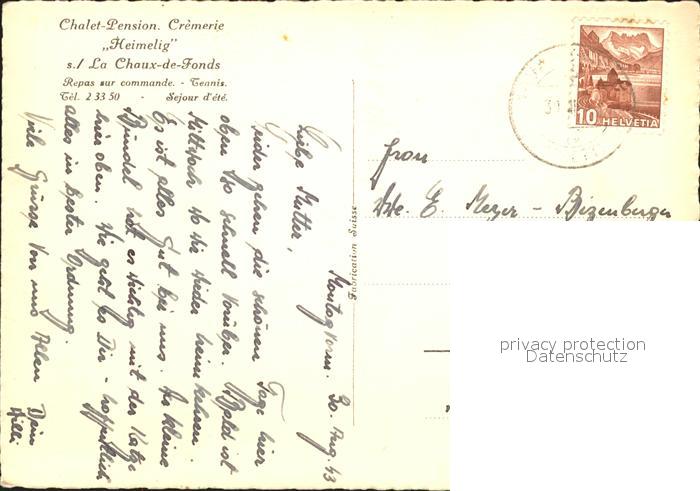 Chalet-Pension. Crèmerie
„Heimelig"
s./ La Chaux-de-Fonds
Repas sur commande. - Tennis.
Tél. 2 33 50 - Sejour d'été.
Montag Vorm. 30. Aug. 43
Liebe Mutter,
Leider gehen die schönen Tage hier
oben so schnell vorüber. Bald ist
Mittwoch wo wir wieder heimkehren.
Es ist alles gut bei uns. Der kleine
hat es wichtig mit der Katze
hier oben. Wie geht es Dir - hoffentlich
alles in bester Ordnung.
Viele Grüsse von uns Allen
Dein
Willi
Fabrication Suisse
Frau
Wwe. E. Meyer - Bizenberger
10 HELVETIA
privacy protection
Datenschutz